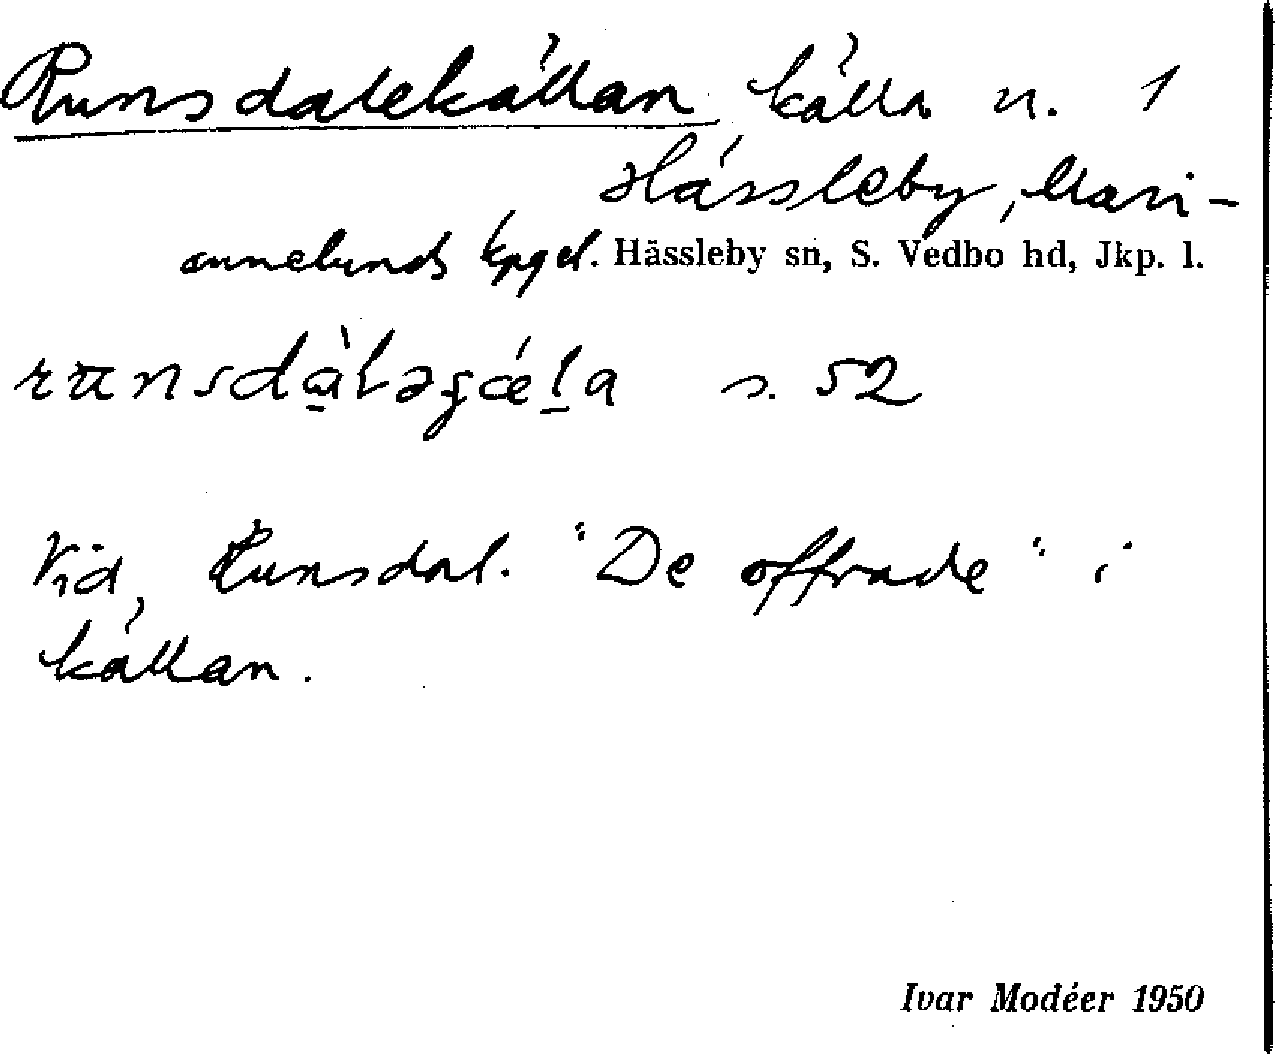 Runsdalekällan källa n. 1
Hässleby, Mari-
annelunds kpgel. Hässleby sn, S. Vedbo hd, Jkp. l.
s. 52
Vid Runsdal. "De offrade" i
källan.
Ivar Modéer 1950